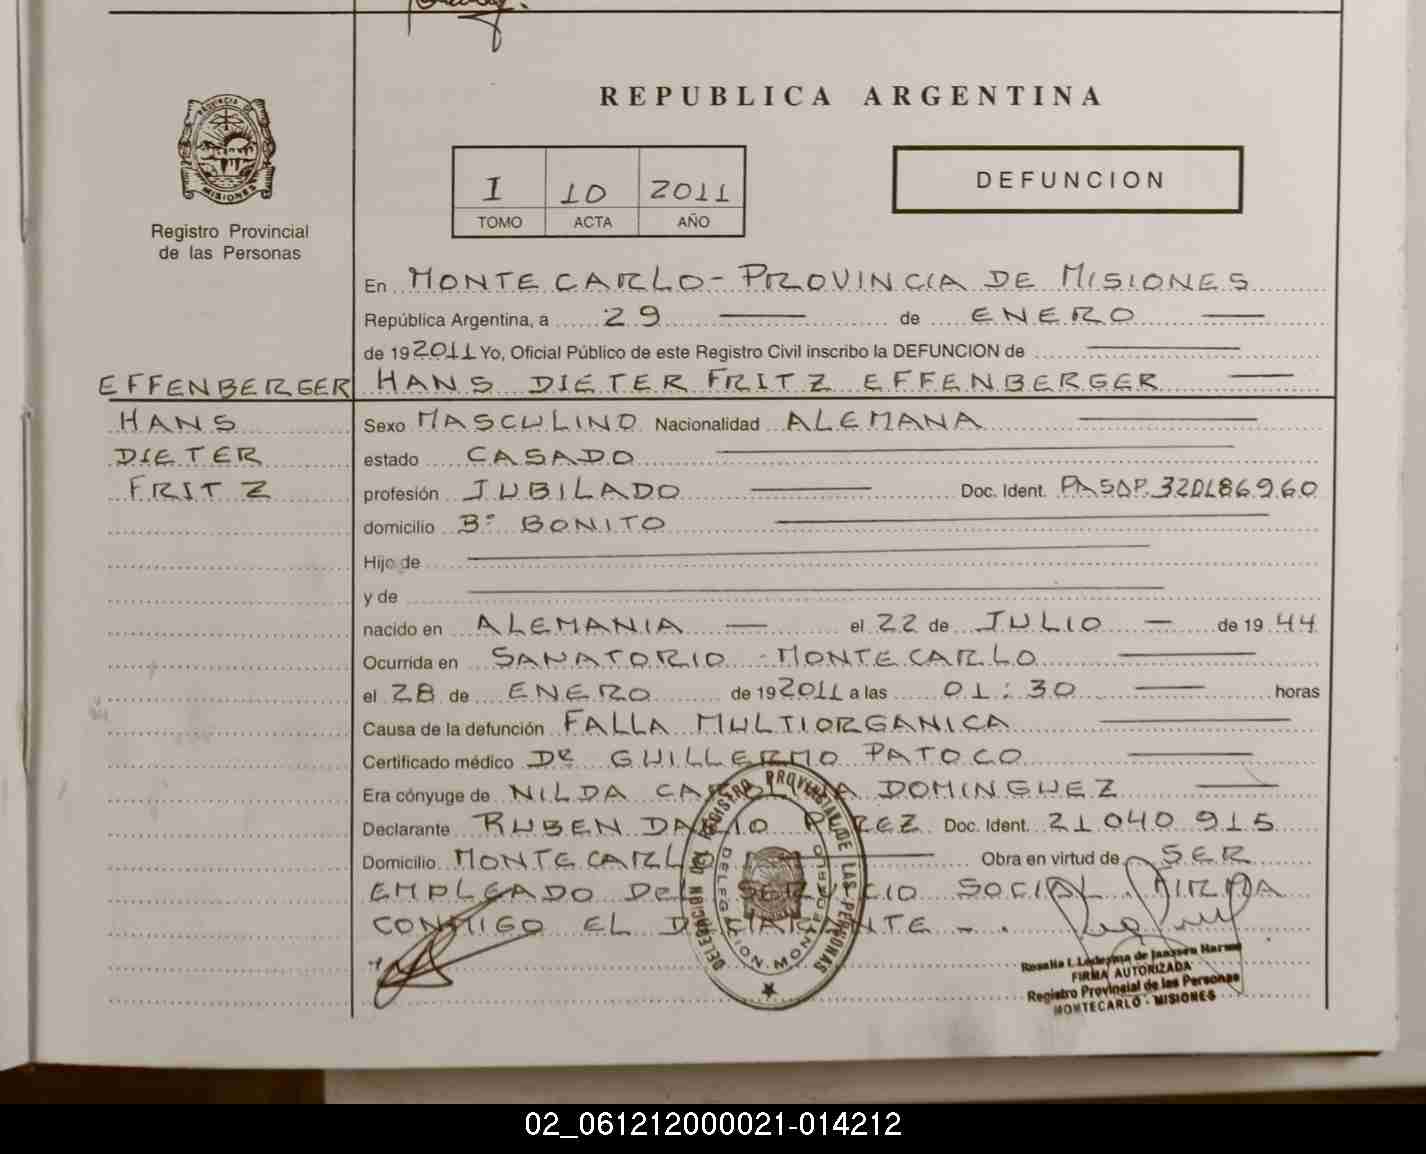 REPUBLICA ARGENTINA
PROVINCIA DE
MISIONES
Registro Provincial
de las Personas
I 10 2011
TOMO ACTA AÑO
DEFUNCION
En MONTECARLO - PROVINCIA DE MISIONES
República Argentina, a 29 de ENERO
de 19 2011 Yo, Oficial Público de este Registro Civil inscribo la DEFUNCION de
EFFENBERGER HANS DIETER FRITZ EFFENBERGER
HANS
DIETER
FRITZ
Sexo MASCULINO Nacionalidad ALEMANA
estado CASADO
profesión JUBILADO Doc. Ident. PASAP.
domicilio B° BONITO
Hijo de
y de
nacido en ALEMANIA el 22 de JULIO de 19 44
Ocurrida en SANATORIO - MONTECARLO
el 28 de ENERO de 19 2011 a las 01:30 horas
Causa de la defunción FALLA MULTIORGANICA
Certificado médico Dr GUILLERMO PATOCO
Era cónyuge de NILDA CAROLINA DOMINGUEZ
Declarante RUBEN DARIO PEREZ Doc. Ident. 21040915
Domicilio MONTECARLO Obra en virtud de SER
EMPLEADO DEL SERVICIO SOCIAL. FIRMA
CONMIGO EL DECLARANTE -.
DELEGACION DEL REGISTRO PROVINCIAL DE LAS PERSONAS
DELEGACION MONTECARLO
Rosalia I. Ledesma de Janssen Harms
FIRMA AUTORIZADA
Registro Provincial de las Personas
MONTECARLO - MISIONES
02_061212000021-014212